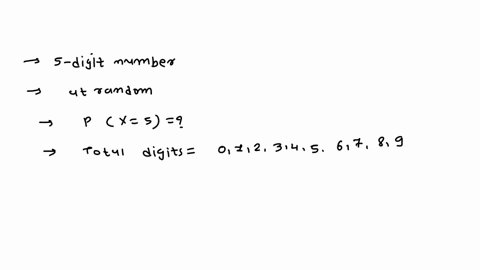 → 5-digit number
→ at random
→ P (X = 5) = ?
→ Total digits = 0, 1, 2, 3, 4, 5. 6, 7, 8, 9